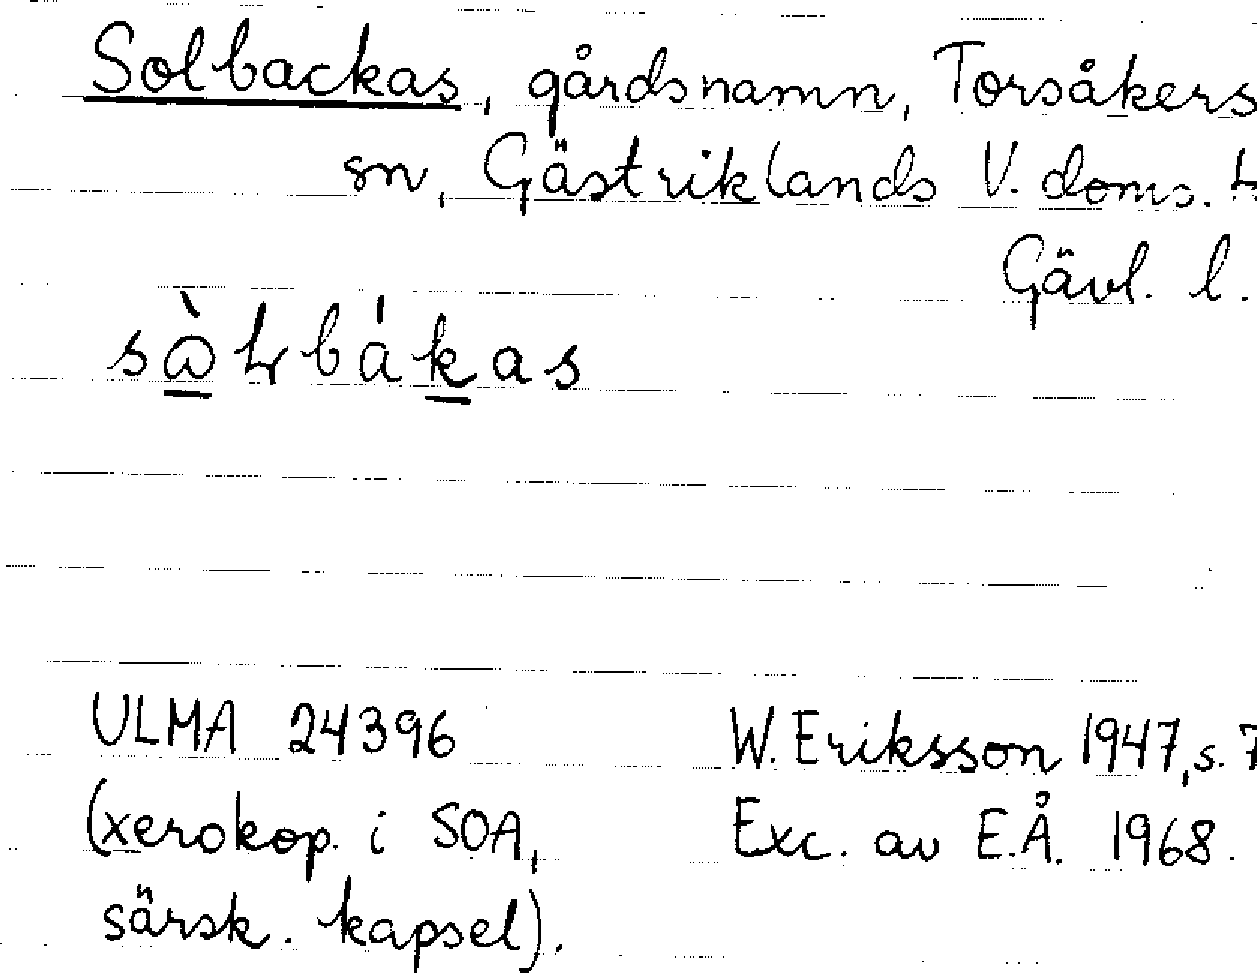 Solbackas, gårdsnamn, Torsåkers
sn, Gästriklands V. doms.
Gävl. l.
ULMA 24396
W. Eriksson 1947, s. 7
(xerokop. i SOA,
Exc. av E.Å. 1968.
särsk. kapsel).